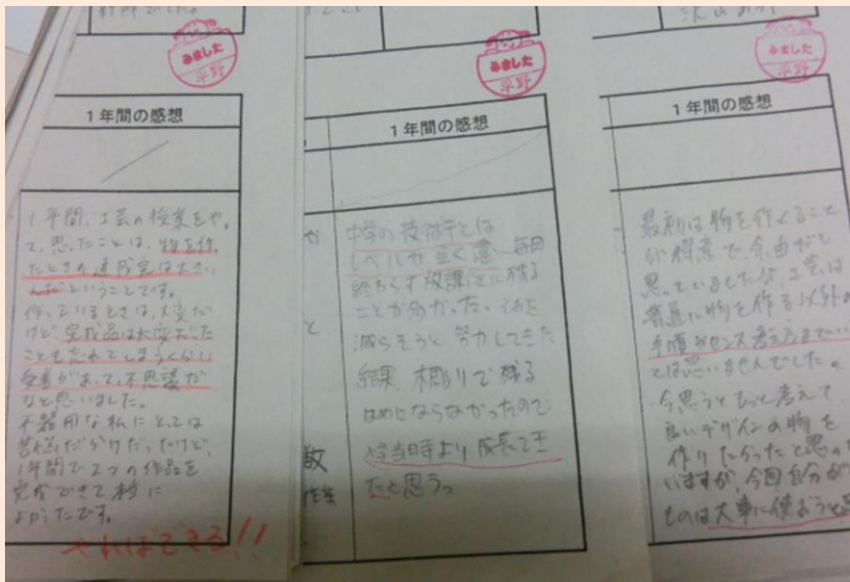 みました
平野
1年間の感想
1年間、工芸の授業をやっ
て、思ったことは、物を作っ
たときの達成感は大きい
んだということです。
作っているときは、大変だ
けど完成品は大変だった
ことも忘れてしまうくらい
愛着があって、不思議だ
なと思いました。
不器用な私にとっては
苦悩だらけだったけど、
1年間で2つの作品を
完成できて本当に
よかったです。
やればできる!!
みました
平野
1年間の感想
中学の技術とは
レベルが全く違い毎回
終わらず放課後に残る
ことが多かった。それを
減らそうと努力してきた
結果、木彫りで残る
はめにならなかったので
当時より成長でき
たと思う。
みました
平野
1年間の感想
最初は物を作ること
が得意で、余裕だと
思っていましたが、工芸は
普通に物を作る以外の
手順やセンス考え方まで
とは思いませんでした。
今思うともっと考えて
良いデザインの物を
作りたかったと思
いますが、今回自分が
ものは大事に使おうと
数
作業